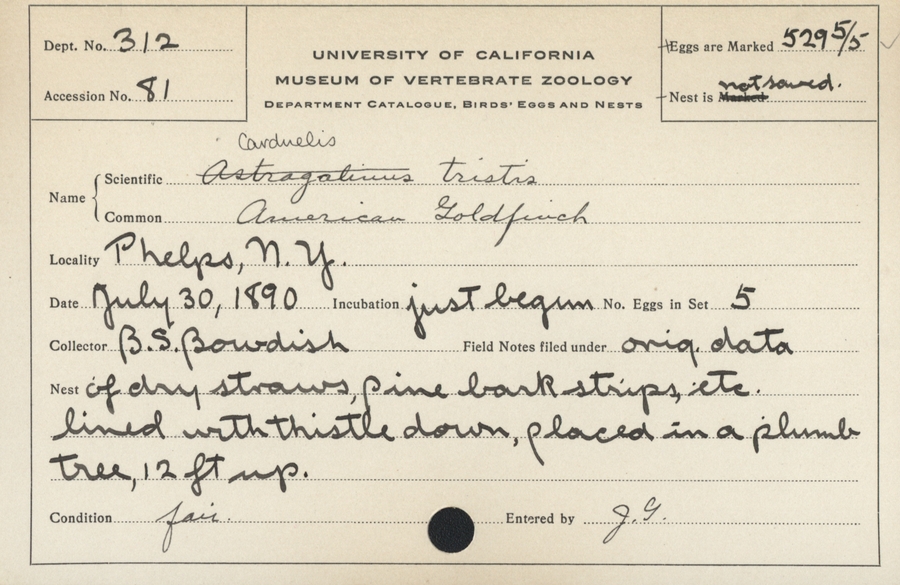 Dept. No. 312
Accession No. 81
UNIVERSITY OF CALIFORNIA
MUSEUM OF VERTEBRATE ZOOLOGY
DEPARTMENT CATALOGUE, BIRDS' EGGS AND NESTS
Eggs are Marked 529 5/5
not saved.
Nest is Marked
Carduelis
Name
Scientific Astragalinus tristis
Common American Goldfinch
Locality Phelps, N.Y.
Date July 30, 1890 Incubation just begun No. Eggs in Set 5
Collector B.S. Bowdish Field Notes filed under orig. data
Nest of dry straws, pine bark strips, etc.
lined with thistle down, placed in a plumb
tree, 12 ft up.
Condition fair. Entered by J.G.